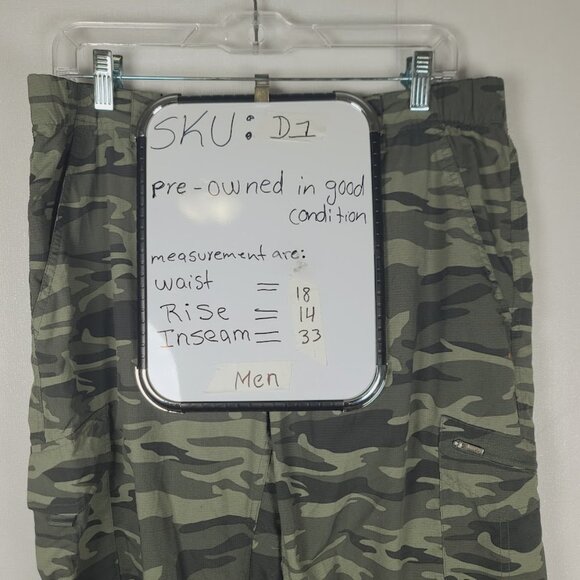 SKU: D1
pre-owned in good
condition
measurement are:
waist = 18
Rise = 14
Inseam = 33
Men